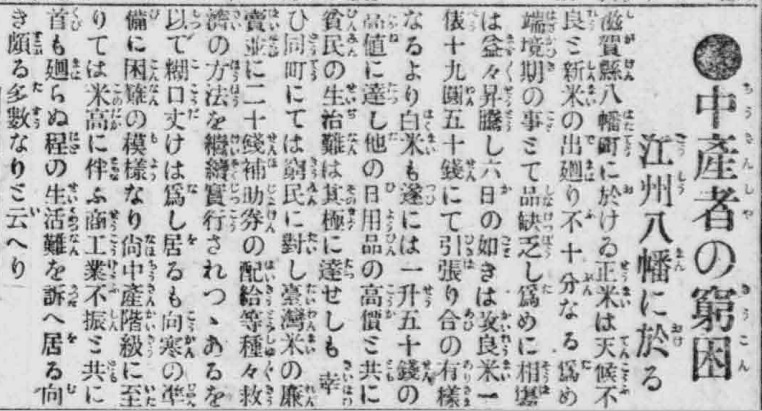 ●中產者の窮困
江州八幡に於る
滋賀縣八幡町に於ける正米は天候不
良と新米の出廻り不十分なる爲め
端境期の事とて品缺乏し爲めに相塲
は益々昇騰し六日の如きは改良米一
俵十九圓五十錢にて引張り合の有樣
なるより白米も遂には一升五十錢の
高値に達し他の日用品の高價と共に
貧民の生治難は其極に達せしも幸
ひ同町にては窮民に對し臺灣米の廉
賣並に二十錢補助券の配給等種々救
濟の方法を繼續實行されつゝあるを
以て糊口丈けは爲し居るも向寒の準
備に困難の模樣なり尙中產階級に至
りては米高に伴ふ商工業不振と共に
首も廻らぬ程の生活難を訴へ居る向
き頗る多數なりと云へり